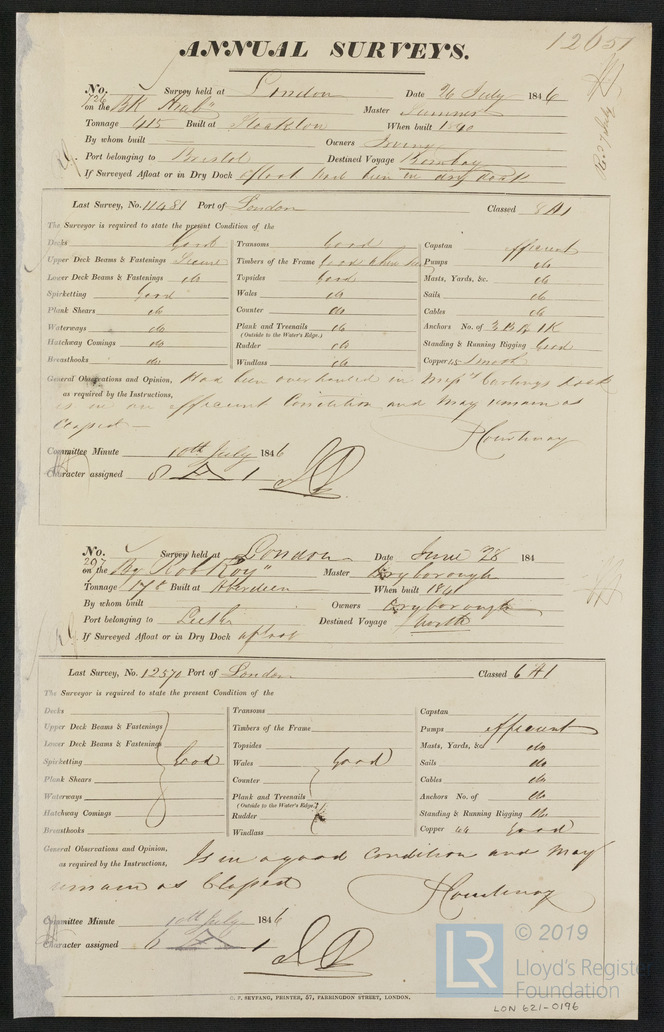 12651
ANNUAL SURVEYS.
No. 726 Survey held at London Date 26 July 1846
on the BK "Arab" Master Sumner
Tonnage 415 Built at Stockton When built 1840
By whom built Owners Irving
Port belonging to Bristol Destined Voyage Bombay
If Surveyed Afloat or in Dry Dock afloat had been in dry dock
Last Survey, No. 11481 Port of London Classed 8 A1
The Surveyor is required to state the present Condition of the
Decks Good Transoms Good Capstan efficient
Upper Deck Beams & Fastenings Secure Timbers of the Frame Good where seen Pumps do
Lower Deck Beams & Fastenings do Topsides Good Masts, Yards, &c. do
Spirketting Good Wales do Sails do
Plank Shears do Counter do Cables do
Waterways do Plank and Treenails do Anchors No. of 3 B & 1K
(Outside to the Water's Edge.)
Hatchway Comings do Rudder do Standing & Running Rigging Good
Breasthooks do Windlass do Copper 45 Smooth
General Observations and Opinion, Had been overhauled in Messrs Curlings Dock
as required by the Instructions,
is in an efficient Condition and May remain as
Classed
Courtenay
Committee Minute 10th July 1846
Character assigned 8 A 1
No. 297 Survey held at London Date June 28 184
on the Bg "Rob Roy" Master Cryborough
Tonnage 178 Built at Aberdeen When built 1841
By whom built Owners Cryborough
Port belonging to Leith Destined Voyage North
If Surveyed Afloat or in Dry Dock afloat
Last Survey, No. 12570 Port of London Classed 6 A1
The Surveyor is required to state the present Condition of the
Decks Transoms Capstan
Upper Deck Beams & Fastenings Timbers of the Frame Pumps efficient
Lower Deck Beams & Fastenings Topsides Masts, Yards, &c. do
Spirketting Good Wales Good Sails do
Plank Shears Counter Cables do
Waterways Plank and Treenails Anchors No. of do
(Outside to the Water's Edge.)
Hatchway Comings Rudder Standing & Running Rigging do
Breasthooks Windlass Copper 44 Good
General Observations and Opinion, Is in a good Condition and May
as required by the Instructions,
remain as Classed
Courtenay
Committee Minute 10th July 1846
Character assigned 6 A 1
S. P. SEYFANG, PRINTER, 57, FARRINGDON STREET, LONDON.
LR © 2019
Lloyd's Register
Foundation
LON 621-0196